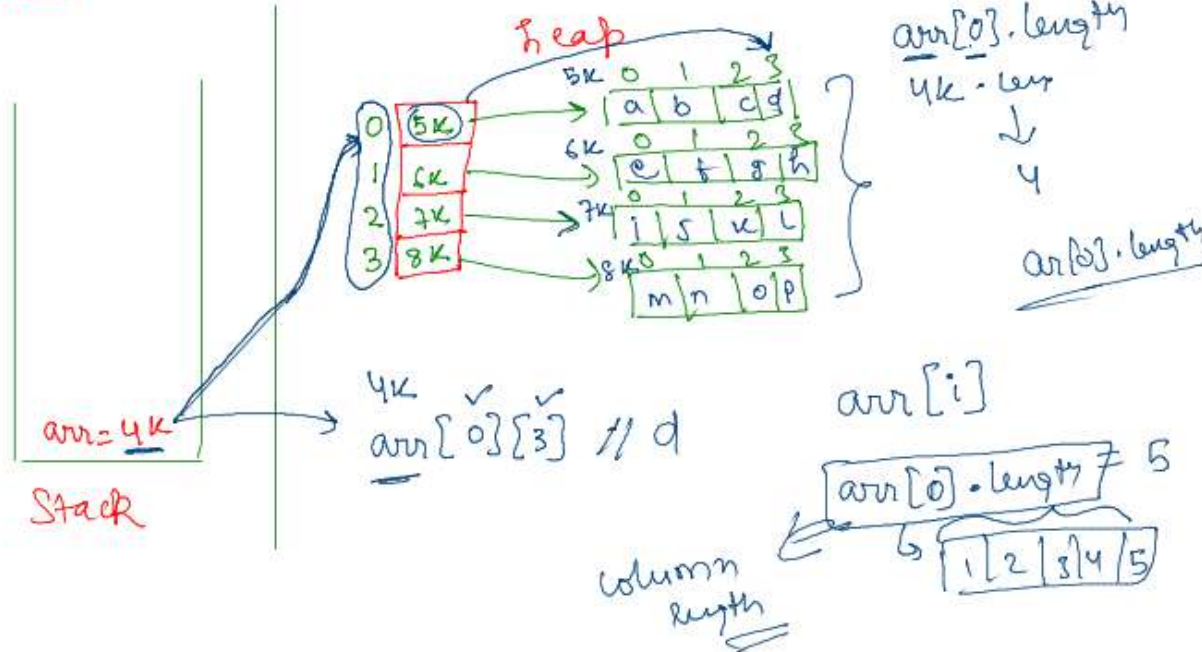 heap
arr[0].length
4K . len
4
ar[0].length
5K 0 1 2 3
a b c d
6K 0 1 2 3
e f g h
7K 0 1 2 3
i j k l
8K 0 1 2 3
m n o p
0 5K
1 6K
2 7K
3 8K
arr=4K
Stack
4K
arr[0][3] // d
arr[i]
arr[0].length = 5
1 2 3 4 5
column
length